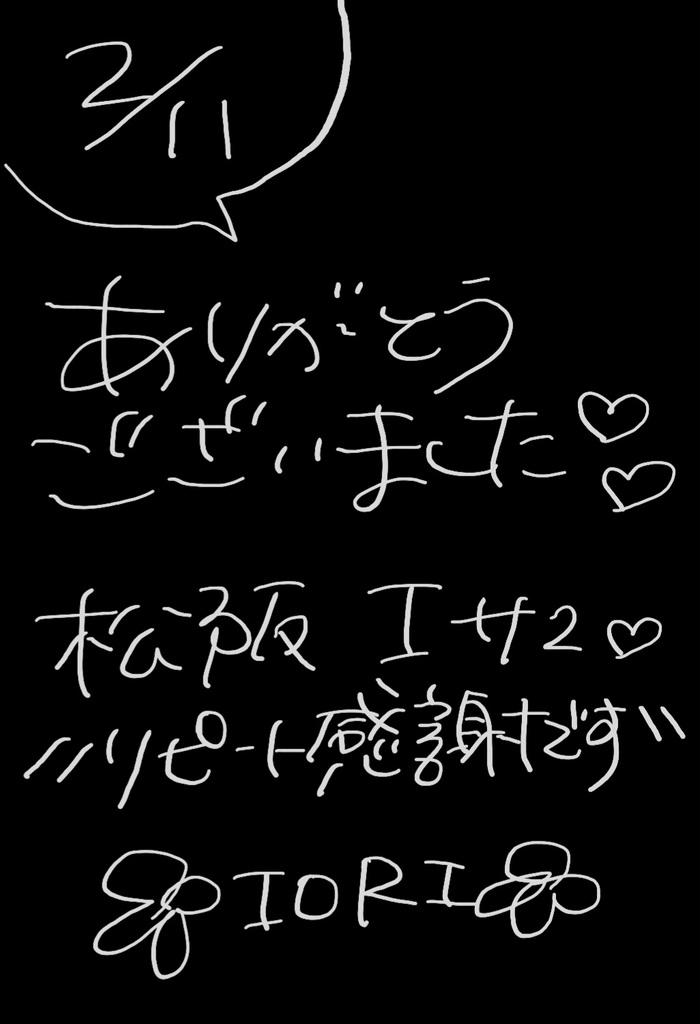 2/11
ありがとう
ございました♡♡
松阪 Iサン♡
//リピート感謝です\\
IORI